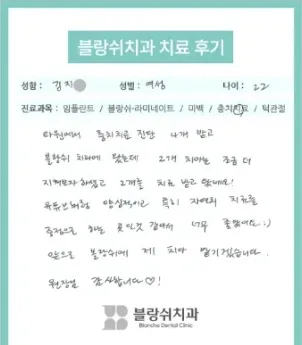 블랑쉬치과 치료 후기
성함 : 김지 성별 : 여성 나이 : 22
진료과목 : 임플란트 / 블랑쉬-라미네이트 / 미백 / 충치치료 / 턱관절
타원에서 충치치료 진단 4개 받고
블랑쉬 치과에 왔는데 2개 치아는 조금 더
지켜보자 하셨고 2개만 치료 받고 왔네요!
과잉진료없이 양심적이고 특히 자연치 치료를
중점으로 하는 곳인것 같아서 너무 좋았어요 :)
앞으로 블랑쉬에 제 치아 맡기겠습니다.
원장님 감사합니다♡!
블랑쉬치과
Blanche Dental Clinic